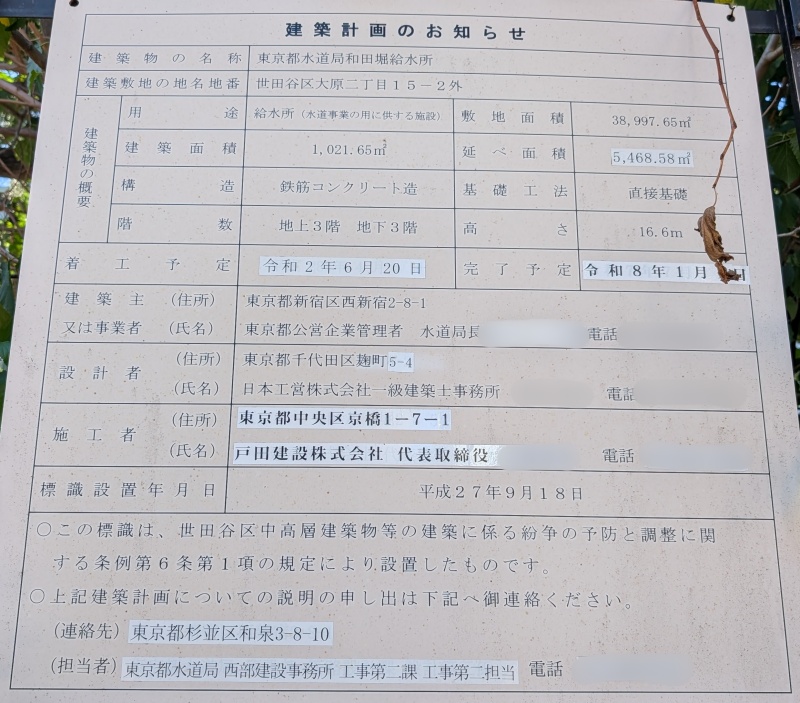 建築計画のお知らせ
建築物の名称 東京都水道局和田堀給水所
建築敷地の地名地番 世田谷区大原二丁目15-2外
建築物の概要
用途 給水所（水道事業の用に供する施設） 敷地面積 38,997.65㎡
建築面積 1,021.65㎡ 延べ面積 5,468.58㎡
構造 鉄筋コンクリート造 基礎工法 直接基礎
階数 地上3階 地下3階 高さ 16.6m
着工予定 令和2年6月20日 完了予定 令和8年1月 日
建築主 （住所） 東京都新宿区西新宿2-8-1
又は事業者 （氏名） 東京都公営企業管理者 水道局長 電話
設計者 （住所） 東京都千代田区麹町5-4
（氏名） 日本工営株式会社一級建築士事務所 電話
施工者 （住所） 東京都中央区京橋1-7-1
（氏名） 戸田建設株式会社 代表取締役 電話
標識設置年月日 平成27年9月18日
○この標識は、世田谷区中高層建築物等の建築に係る紛争の予防と調整に関
する条例第6条第1項の規定により設置したものです。
○上記建築計画についての説明の申し出は下記へ御連絡ください。
（連絡先）東京都杉並区和泉3-8-10
（担当者）東京都水道局 西部建設事務所 工事第二課 工事第二担当 電話